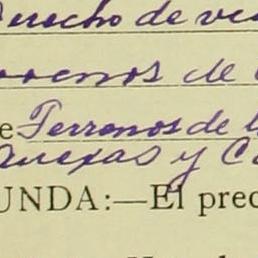 Derecho de ve
rrenos de
e Terrenos de l
anexas y Co
UNDA:—El prec